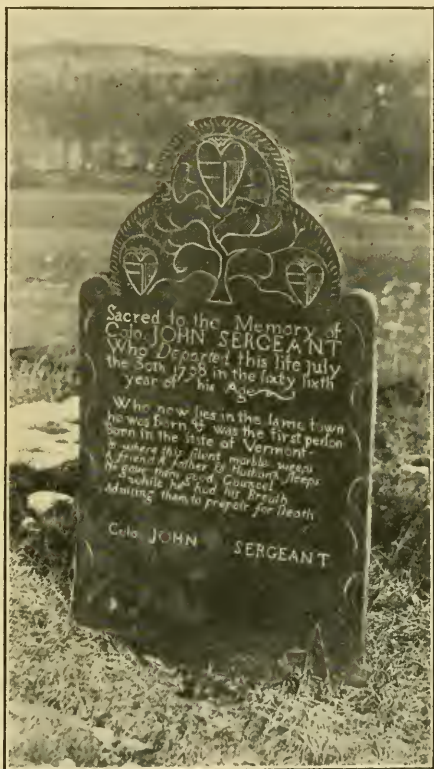 Sacred to the Memory of
Colo. JOHN SERGEANT
Who Departed this life July
the 30th 1798 in the sixty sixth
year of his Age
Who now lies in the same town
he was Born & was the first person
born in the State of Vermont.
is where this silent marble weeps
A friend A father & Husband sleeps
he gave them good Councel
while he had his Breath
Advising them to prepair for Death
Colo. JOHN SERGEANT